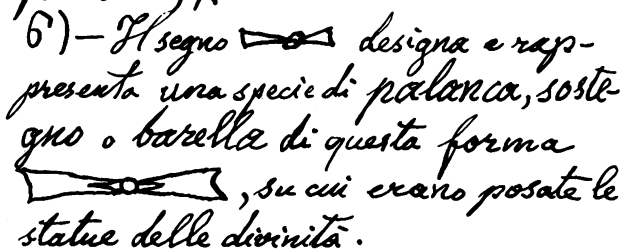 6)– Il segno designa e rap-
presenta una specie di palanca, soste-
gno o barella di questa forma
, su cui erano posate le
statue delle divinità.